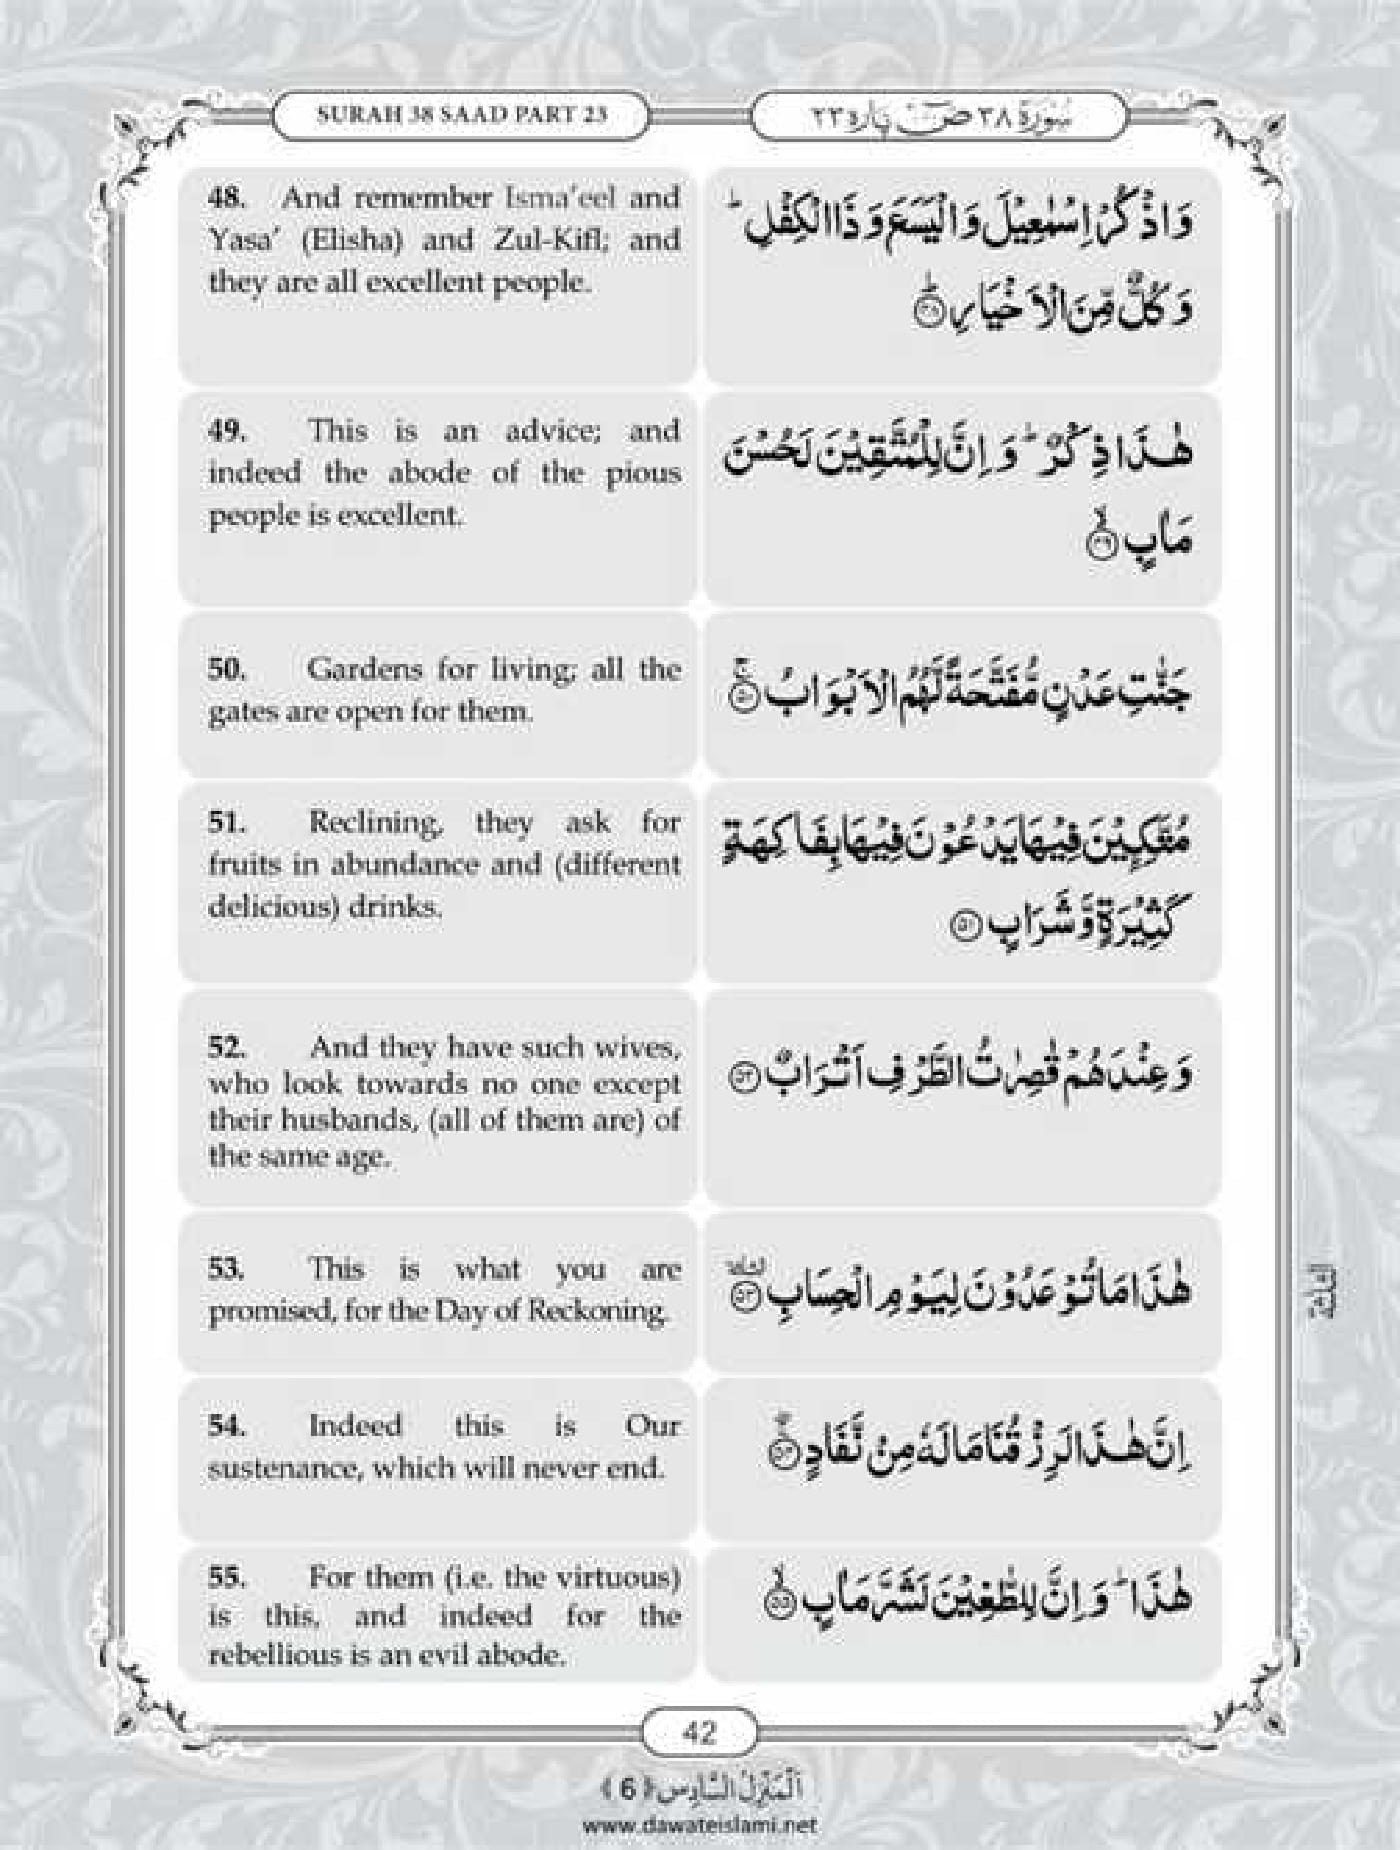 SURAH 38 SAAD PART 23
سُوْرَةُ ٣٨ صٓ پاره ٢٣
48. And remember Isma'eel and
Yasa' (Elisha) and Zul-Kifl; and
they are all excellent people.
وَاذْكُرْ اِسْمٰعِيْلَ وَالْيَسَعَ وَذَا الْكِفْلِ ؕ
وَكُلٌّ مِّنَ الْاَخْيَارِ ؕ﴿۴۸﴾
49. This is an advice; and
indeed the abode of the pious
people is excellent.
هٰذَا ذِكْرٌ ؕ وَ اِنَّ لِلْمُتَّقِيْنَ لَحُسْنَ
مَاٰبٍ ۙ﴿۴۹﴾
50. Gardens for living; all the
gates are open for them.
جَنّٰتِ عَدْنٍ مُّفَتَّحَةً لَّهُمُ الْاَبْوَابُ ۚ﴿۵۰﴾
51. Reclining, they ask for
fruits in abundance and (different
delicious) drinks.
مُتَّكِـِٕيْنَ فِيْهَا يَدْعُوْنَ فِيْهَا بِفَاكِهَةٍ
كَثِيْرَةٍ وَّ شَرَابٍ ﴿۵۱﴾
52. And they have such wives,
who look towards no one except
their husbands, (all of them are) of
the same age.
وَعِنْدَهُمْ قٰصِرٰتُ الطَّرْفِ اَتْرَابٌ ﴿۵۲﴾
53. This is what you are
promised, for the Day of Reckoning.
هٰذَا مَا تُوْعَدُوْنَ لِيَوْمِ الْحِسَابِ ﴿۵۳﴾
54. Indeed this is Our
sustenance, which will never end.
اِنَّ هٰذَا لَرِزْقُنَا مَا لَهٗ مِنْ نَّفَادٍ ﴿۵۴﴾
55. For them (i.e. the virtuous)
is this, and indeed for the
rebellious is an evil abode.
هٰذَا ؕ وَ اِنَّ لِلطّٰغِيْنَ لَشَرَّ مَاٰبٍ ۙ﴿۵۵﴾
42
اَلْمَنْزِلُ السَّادِس ﴿6﴾
www.dawateislami.net